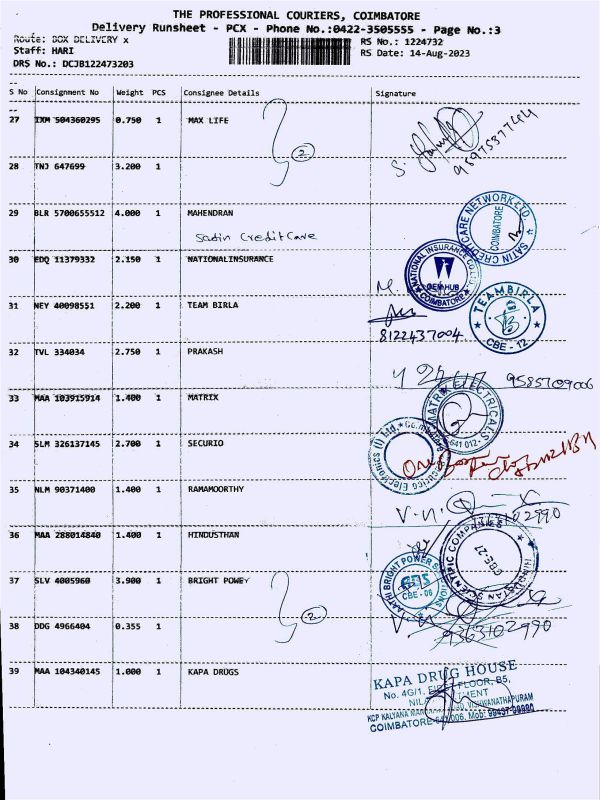 THE PROFESSIONAL COURIERS, COIMBATORE
Delivery Runsheet - PCX - Phone No.:0422-3505555 - Page No.:3
Route: BOX DELIVERY x
RS No.: 1224732
Staff: HARI
RS Date: 14-Aug-2023
DRS No.: DCJB122473203
S No Consignment No Weight PCS Consignee Details Signature
27 IXM 504360295 0.750 1 MAX LIFE
2
28 TNJ 647699 3.200 1
29 BLR 5700655512 4.000 1 MAHENDRAN
Satin CreditCare
SATIN CREDITCARE NETWORK LTD.
COIMBATORE
30 EDQ 11379332 2.150 1 NATIONALINSURANCE
NATIONAL INSURANCE CO. LTD.
COIMBATORE
31 NEY 40098551 2.200 1 TEAM BIRLA
TEAM BIRLA
CBE - 12
8122437004
32 TVL 334034 2.750 1 PRAKASH
9585709006
33 MAA 103915914 1.400 1 MATRIX
MATRIX ELECTRICALS
641 012
34 SLM 326137145 2.700 1 SECURIO
35 NLM 90371400 1.400 1 RAMAMOORTHY
36 MAA 288014840 1.400 1 HINDUSTHAN
HINDUSTAN SCIENTIFIC COMPANIES
CBE-27
37 SLV 4005960 3.900 1 BRIGHT POWEY
BRIGHT POWER
CBE - 06
2
38 DDG 4966404 0.355 1
39 MAA 104340145 1.000 1 KAPA DRUGS
KAPA DRUG HOUSE
No. 4G/1, FIRST FLOOR, B5,
COIMBATORE-641 006.